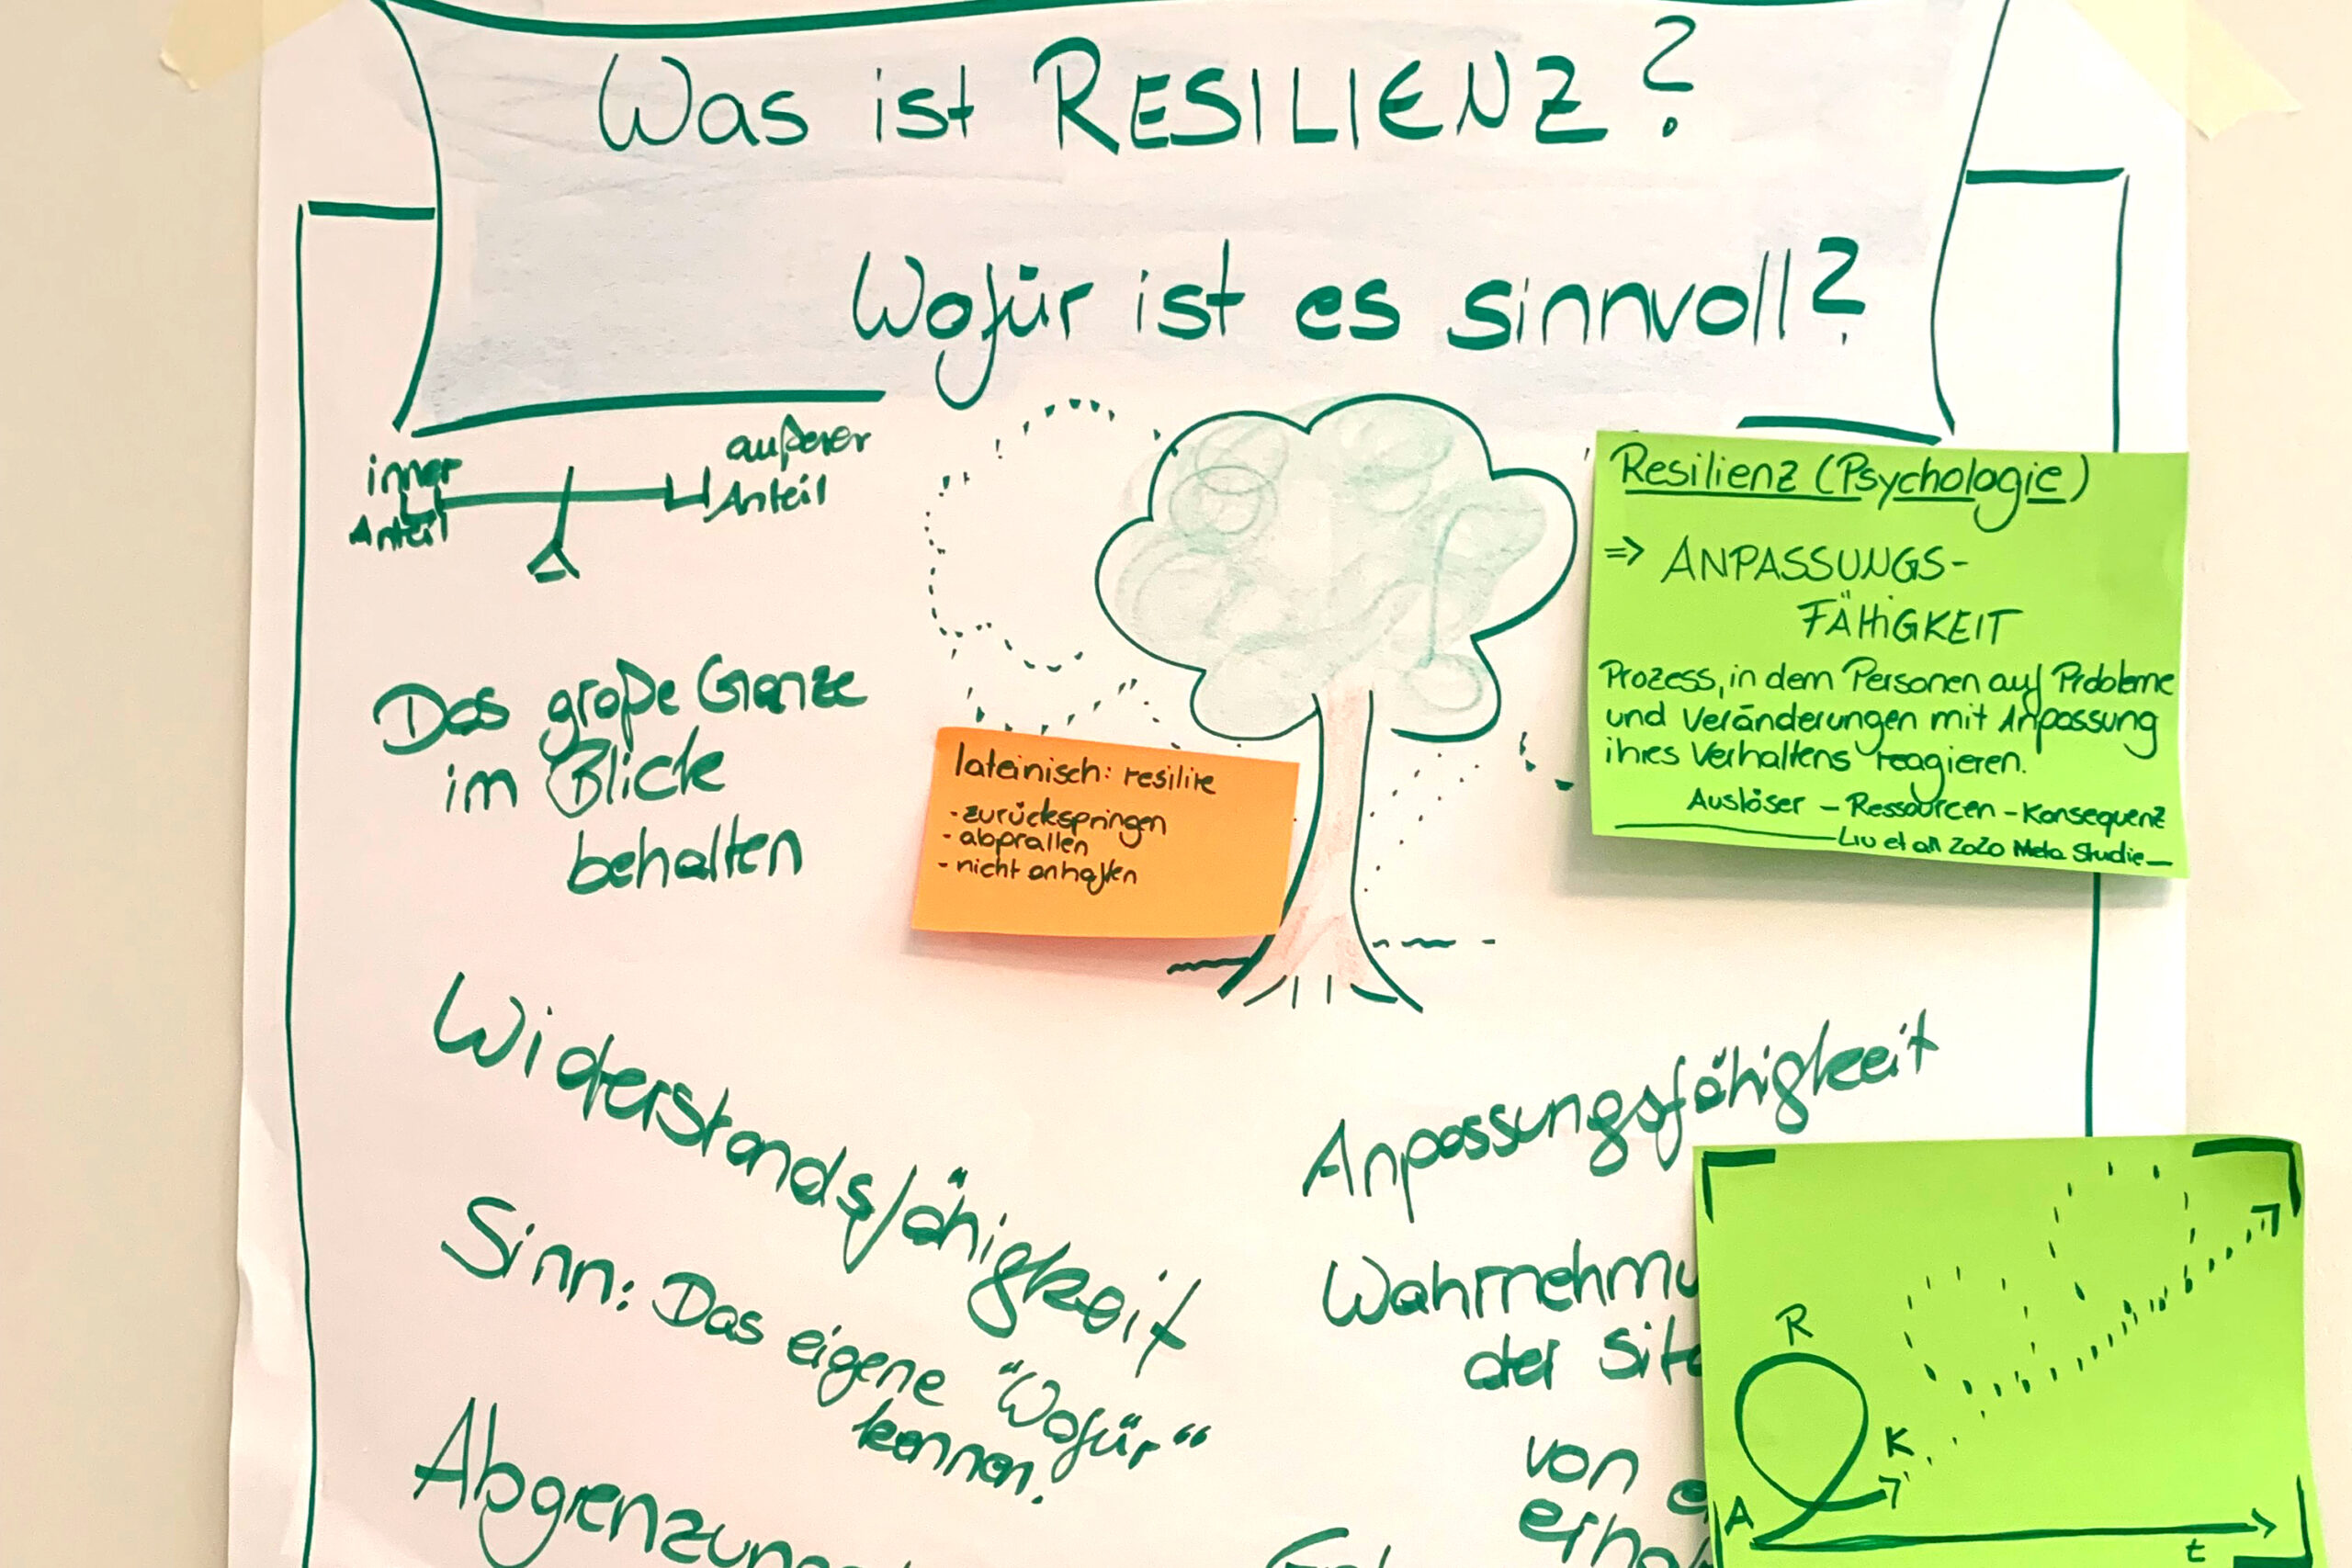 Was ist RESILIENZ?
Wofür ist es sinnvoll?
inner
Anteil
äußerer
Anteil
Resilienz (Psychologie)
=> ANPASSUNGS-
FÄHIGKEIT
Prozess, in dem Personen auf Probleme
und Veränderungen mit Anpassung
ihres Verhaltens reagieren.
Auslöser - Ressourcen - Konsequenz
Liu et all 2020 Meta Studie
Das große Ganze
im Blick
behalten
lateinisch: resilire
- zurückspringen
- abprallen
- nicht anhaften
Widerstandsfähigkeit
Anpassungsfähigkeit
Sinn: Das eigene "Wofür"
kennen.
Wahrnehmu
der Sit
von e
erho
Abgrenzung
R
K
A
t